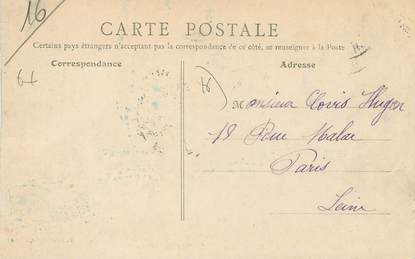 16
CARTE POSTALE
Certains pays étrangers n'acceptent pas la correspondance de ce côté, se renseigner à la Poste
Correspondance
Adresse
Monsieur Clovis Hugon
18 Rue Malar
Paris
Seine